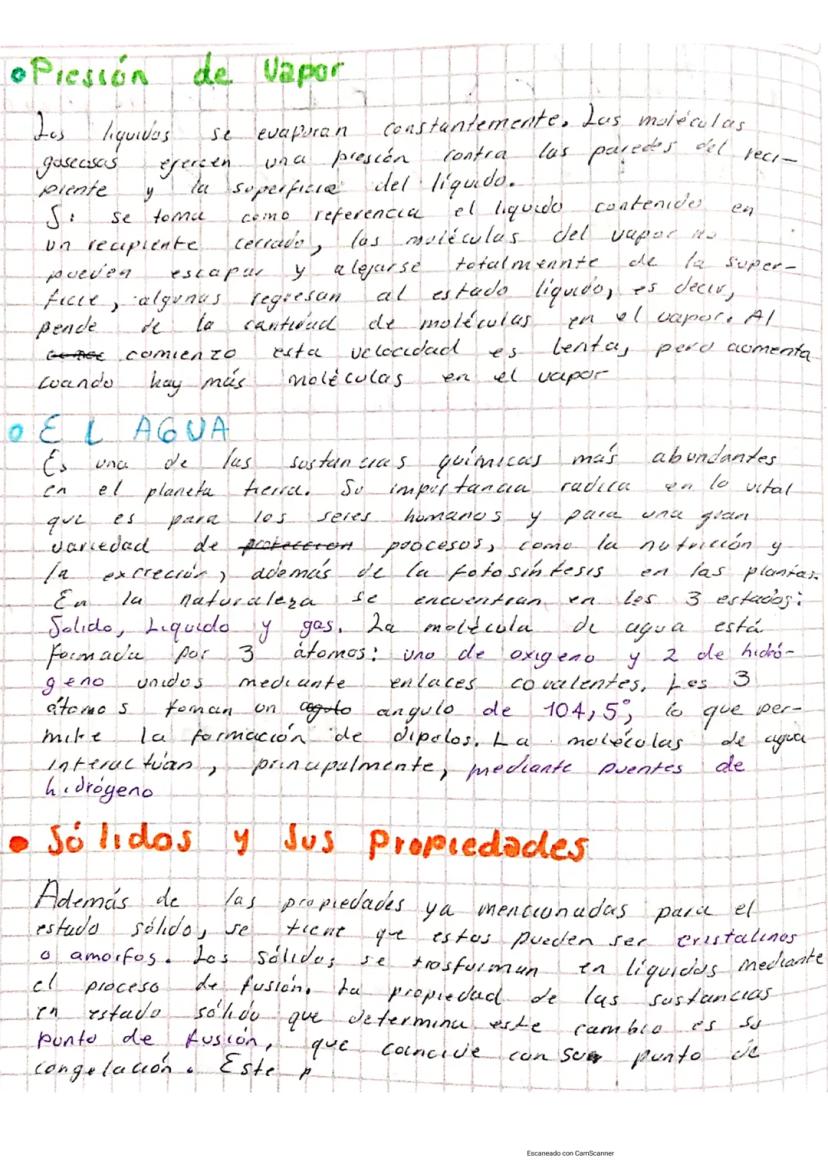 Presión de Vapor
Los liquidos se evaporan constantemente. Las moléculas
gaseosas ejercen una presión contra las paredes del reci-
piente y la superficie del líquido.
Si se toma como referencia el liquido contenido en
un recipiente cerrado, las moléculas del vapor no
pueden escapar y alejarse totalmennte de la super-
ficie, algunas regresan al estado líquido, es decir,
pende de la cantidad de moléculas en el vapor. Al
comienzo esta velocidad es lenta, pero aomenta
cuando hay más moléculas en el vapor
EL AGUA
Es una de las sustancias químicas más abundantes
en el planeta tierra. Su importancia radica en lo vital
que es para los seres humanos y para una gran
variedad de proteccion poocesos, como la nutrición y
la excreción, además de la fotosíntesis en las plantas.
En la naturaleza se encuentran en los 3 estados:
Solido, Liquido y gas. La molécula de agua está
formada por 3 átomos: uno de oxigeno y 2 de hidró-
geno unidos mediante enlaces covalentes. Los 3
átomos foman un agulo angulo de 104,5°, lo que per-
mite la formación de dipolos. La moléculas de agua
interactúan, principalmente, mediante puentes de
hidrógeno
Sólidos y Sus Propiedades
Además de las propiedades ya mencionadas para el
estado sólido, se tiene que estos pueden ser cristalinos
o amorfos. Los sólidos se trosforman en líquidos mediante
el proceso de fusión. La propiedad de las sustancias
en estado sólido que determina este cambio es su
punto de fusión, que coincide con su punto de
congelación. Este p
Escaneado con CamScanner